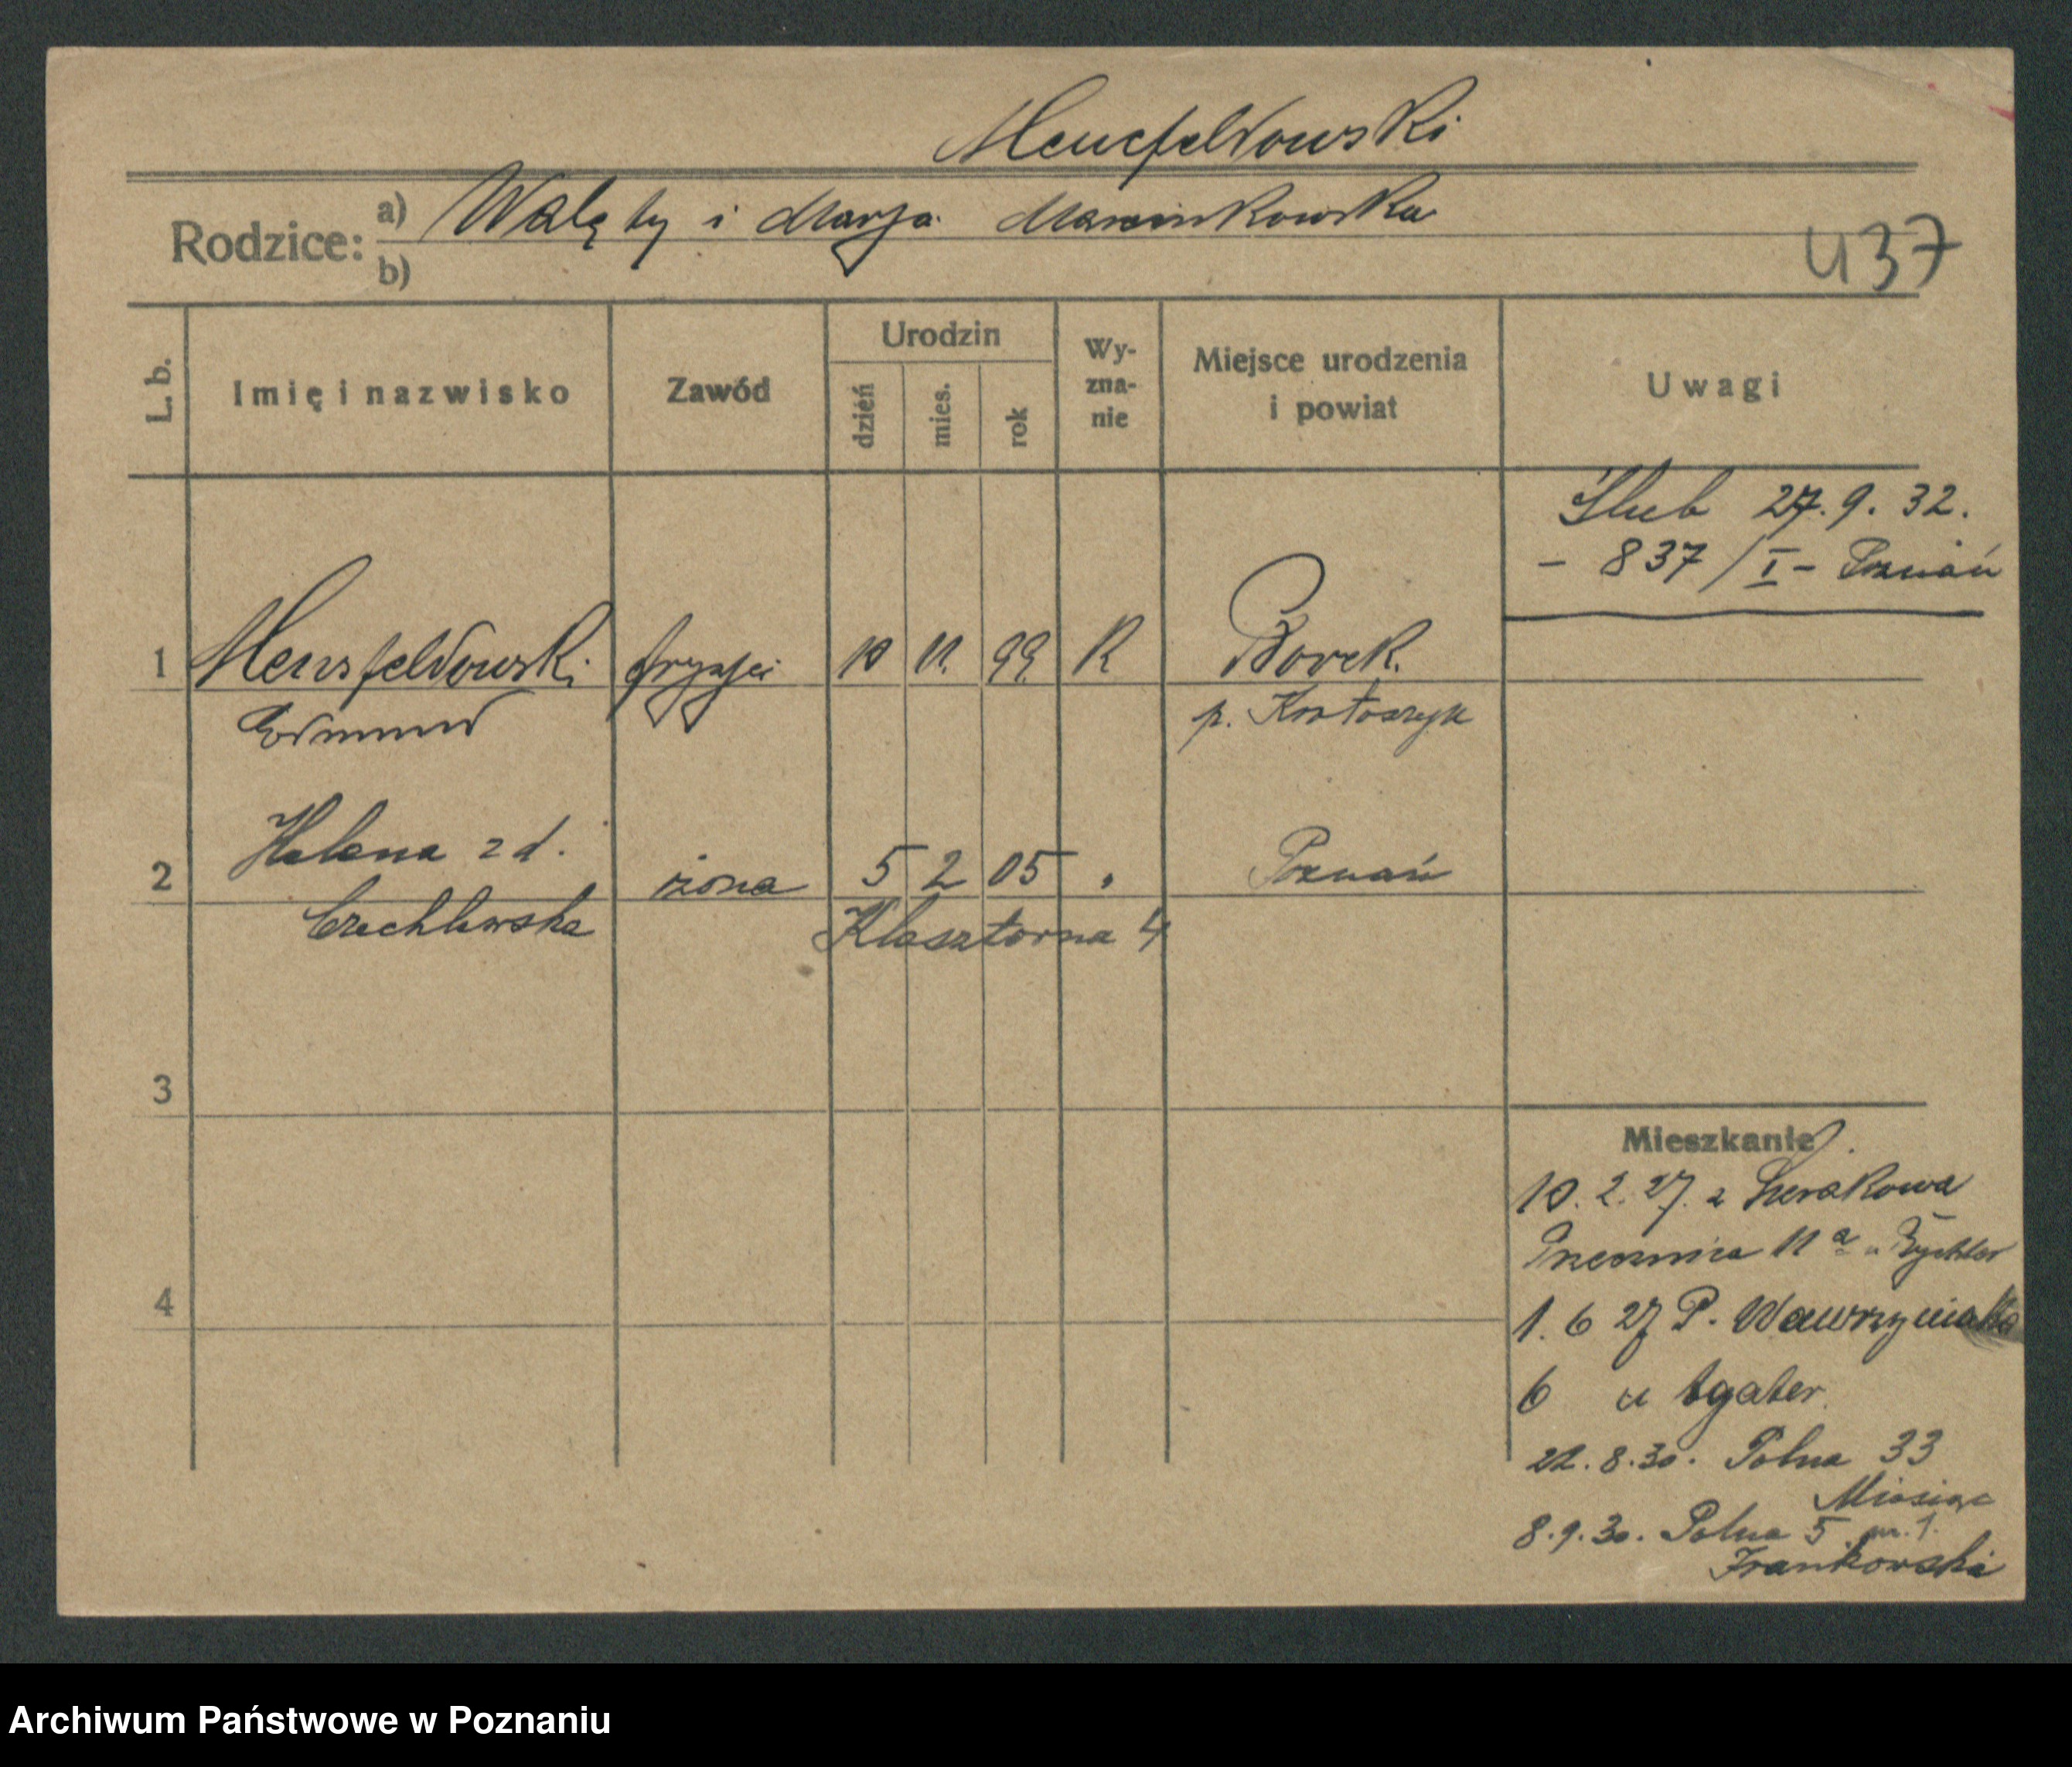 Mensfeldowski
Rodzice: a) Walęty i Marja Marcinkowska
b)
437
L. b.
Imię i nazwisko
Zawód
Urodzin
dzień
mies.
rok
Wyzna-
nie
Miejsce urodzenia
i powiat
Uwagi
Ślub 27. 9. 32.
- 837/I - Poznań
1 Mensfeldowski fryzjer 10 11. 99. R Borek
Edmund p. Krotoszyn
2 Helena z d. żona 5 2 05 " Poznań
Czechlewska Klasztorna 4
3
4
Mieszkanie
10. 2. 27. z Sierakowa
11 a u Rychter
1. 6 27 P. Wawrzyniaka
6 u
22. 8. 30. Polna 33
Miesiąc
8. 9. 30. Polna 5 m. 1.
Frankowski
Archiwum Państwowe w Poznaniu